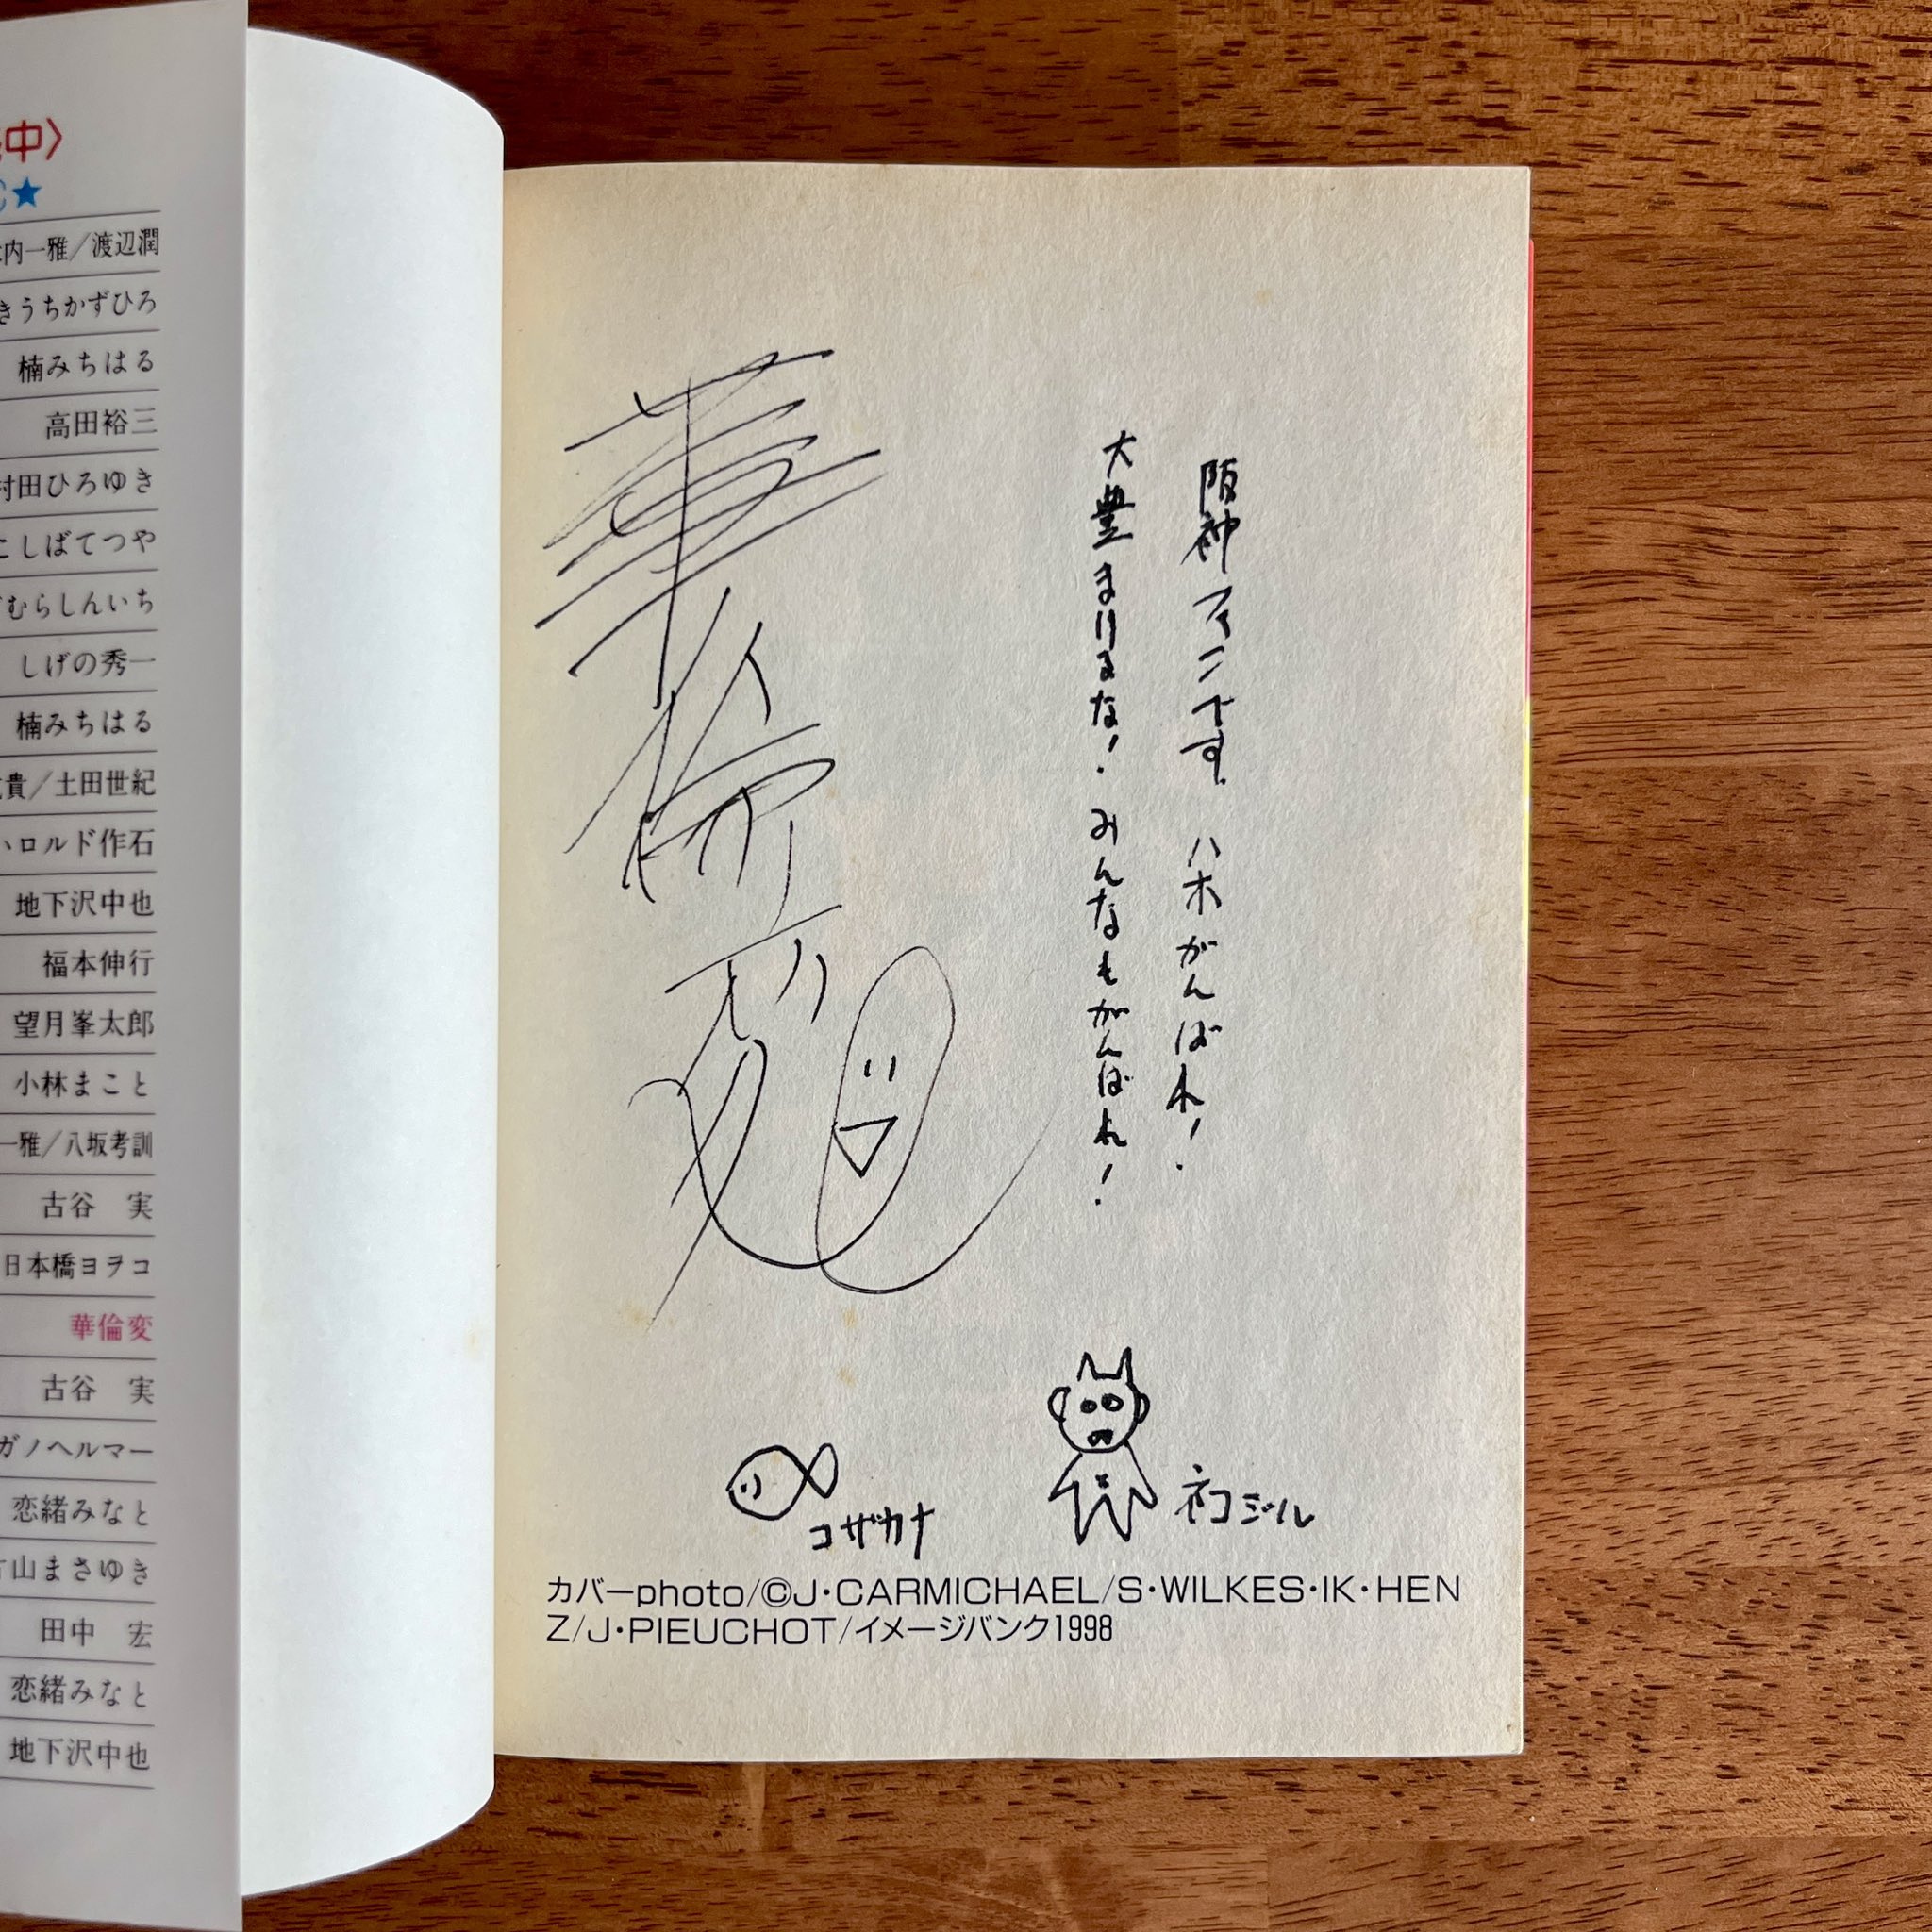 中〉
★
内一雅／渡辺潤
きうちかずひろ
楠みちはる
高田裕三
村田ひろゆき
こしばてつや
むらしんいち
しげの秀一
楠みちはる
貴／土田世紀
ハロルド作石
地下沢中也
福本伸行
望月峯太郎
小林まこと
一雅／八坂考訓
古谷　実
日本橋ヨヲコ
華倫変
古谷　実
ガノヘルマー
恋緒みなと
山まさゆき
田中　宏
恋緒みなと
地下沢中也
阪神ファンです。ハホがんばれ!
大豊まけるな! みんなもがんばれ!
華倫変
コザカナ
ネコジル
カバーphoto/©J・CARMICHAEL/S・WILKES・IK・HEN
Z/J・PIEUCHOT/イメージバンク1998